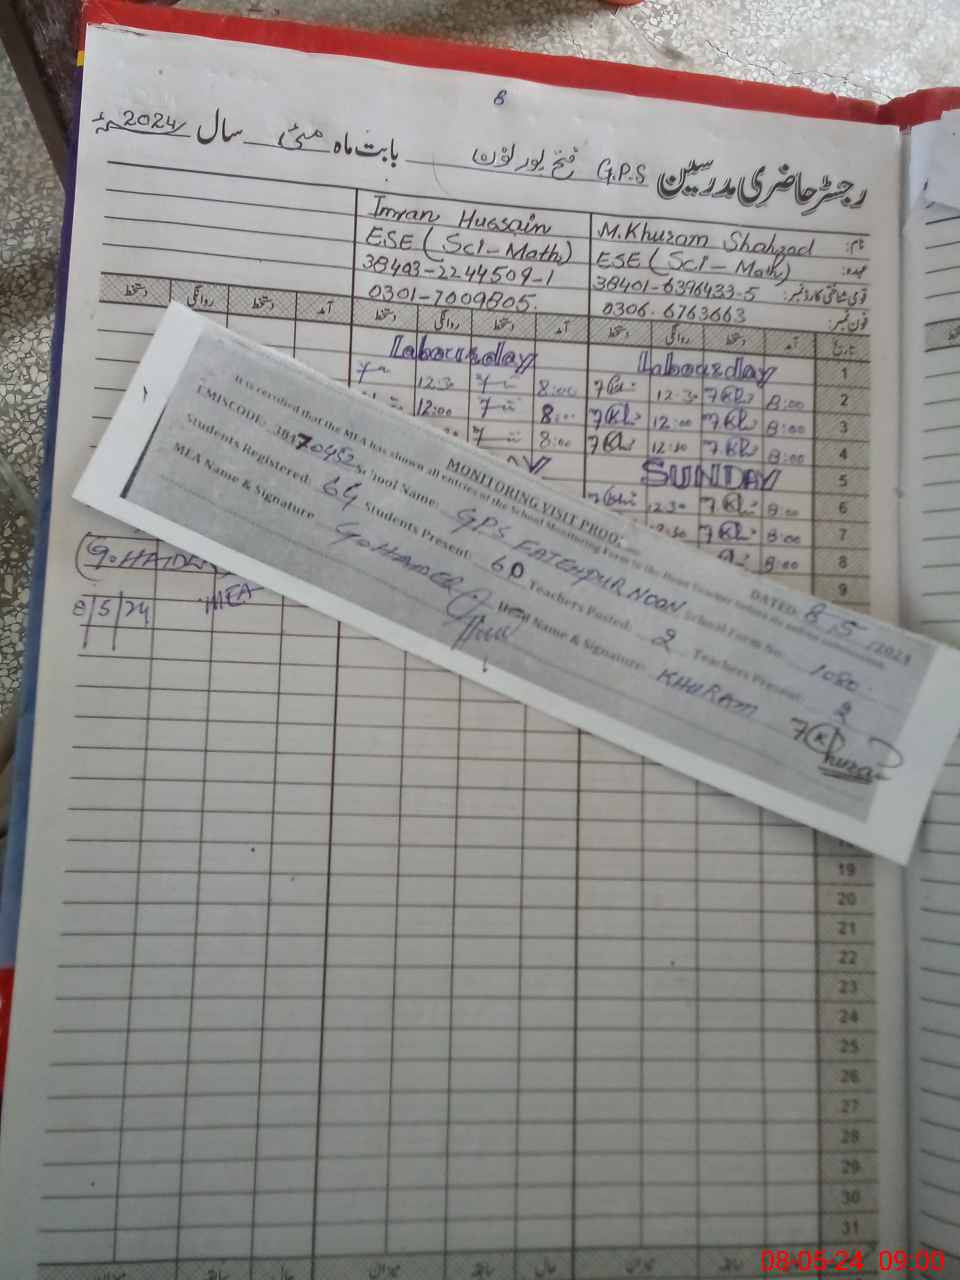 6
رجسٹر حاضری مدرسین G.P.S فتح پور نون بابت ماہ مئی سال 2024ء
نام: M.Khuram Shahzad Imran Hussain
عہدہ: ESE (Sci-Math) ESE (Sci-Math)
قومی شناختی کارڈ نمبر: 38401-6396433-5 38403-2244509-1
فون نمبر: 0306-6763663 0301-7009805
تاریخ آمد دستخط روانگی دستخط آمد دستخط روانگی دستخط آمد دستخط روانگی دستخط
1 Labour day Labour day
2 8:00 12:30 8:00 12:30
3 8:00 12:00 8:00 12:00
4 8:00 12:30 8:00
5 SUNDAY
6 8:00 12:30
7 8:00 12:30
8 8:00
9
MONITORING VISIT PROOF
DATED: 8-5-2024
It is certified that the MEA has shown all entries of the School Monitoring Form to the Head Teacher before its online submission.
EMISCODE: 38470452 School Name: GPS FATEHPUR NOON School Form No: 1080
Students Registered: 64 Students Present: 60 Teachers Posted: 2 Teachers Present: 2
MEA Name & Signature G.HAIDER Head Name & Signature: KHURAM
Khuram
G.HAIDER
MEA
8/5/24
19
20
21
22
23
24
25
26
27
28
29
30
31
08-05-24 09:00